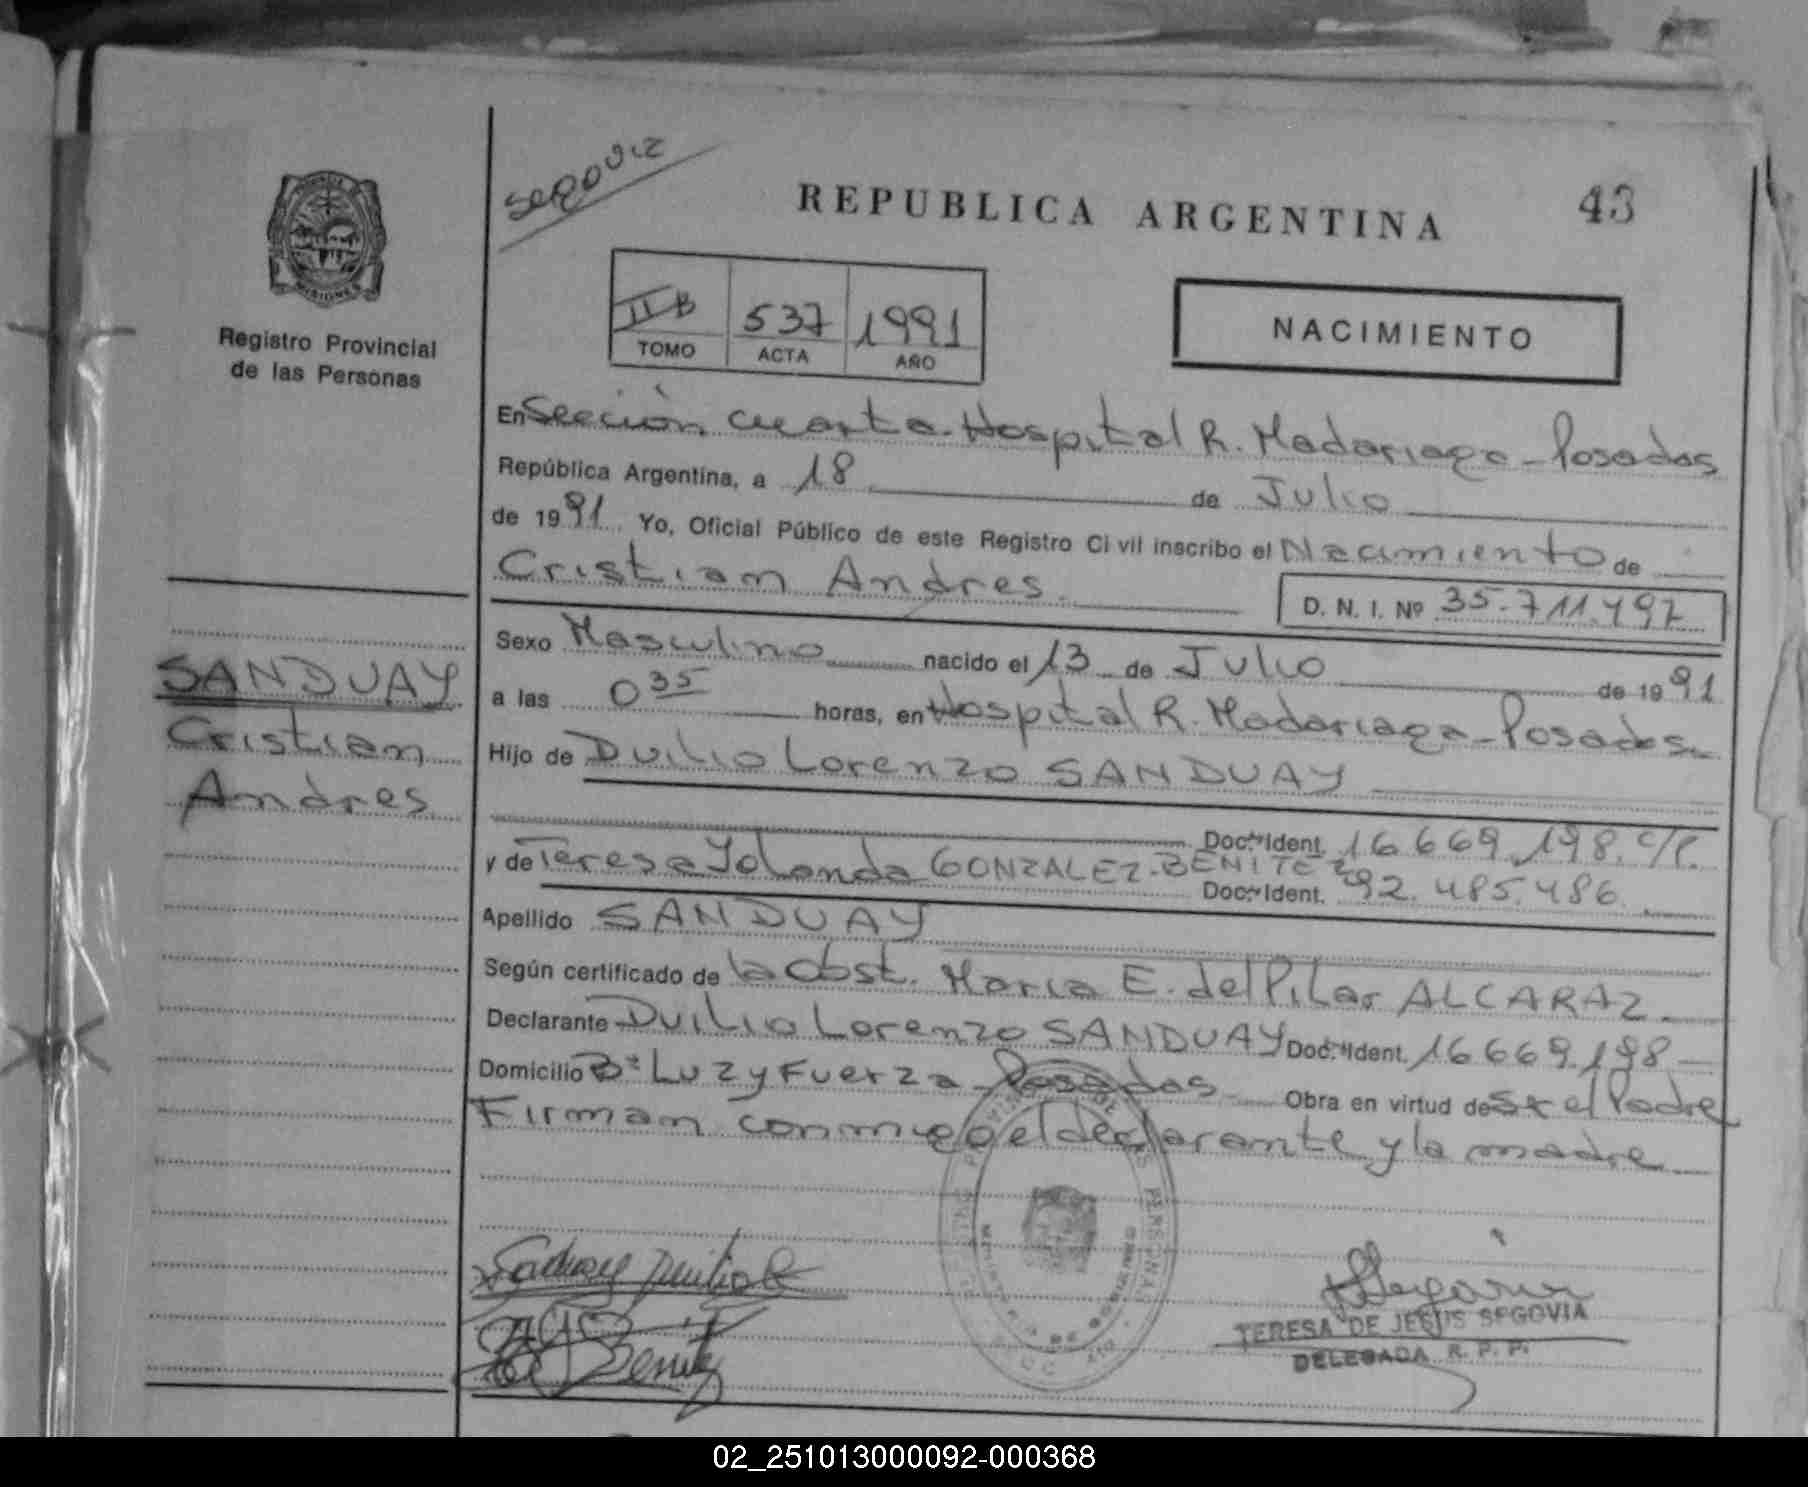 Segovia
REPUBLICA ARGENTINA
43
MISIONES
Registro Provincial
de las Personas
II B 537 1991
TOMO ACTA AÑO
NACIMIENTO
En Sección cuarta. Hospital R. Madariaga - Posadas
República Argentina, a 18 de Julio
de 1991 Yo, Oficial Público de este Registro Civil inscribo el Nacimiento de
Cristian Andres
D. N. I. Nº 35.711.497
Sexo Masculino nacido el 13 de Julio de 1991
a las 0 35 horas, en Hospital R. Madariaga - Posadas
Hijo de Duilio Lorenzo SANDUAY
Doc. Ident. 16.669.198. C/P.
y de Teresa Yolanda GONZALEZ-BENITEZ
Doc. Ident. 92.485.486
Apellido SANDUAY
Según certificado de la Obst. Maria E. del Pilar ALCARAZ
Declarante Duilio Lorenzo SANDUAY Doc. Ident. 16.669.198
Domicilio Bº Luz y Fuerza - Posadas Obra en virtud de Ser el Padre
Firman conmigo el declarante y la madre
SANDUAY
Cristian
Andres
Sanduay Duilio L
Benitez
TERESA DE JESUS SEGOVIA
DELEGADA R. P. P.
02_251013000092-000368